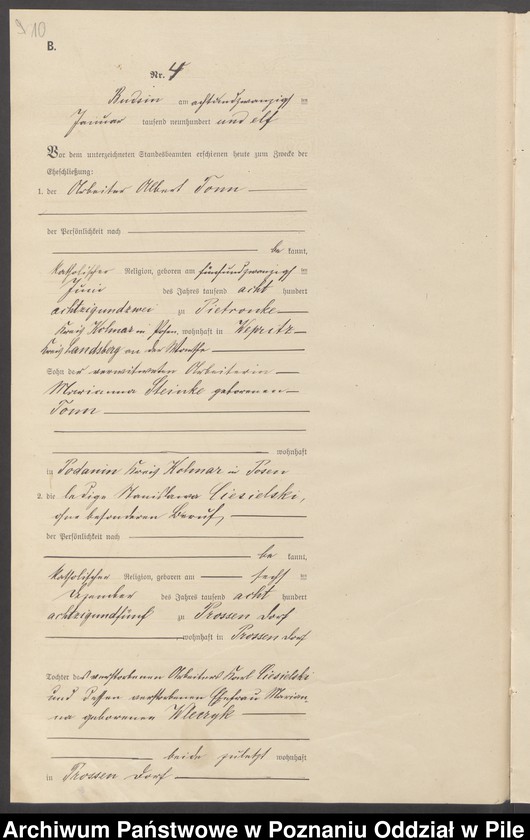 9 10
B.
Nr. 4
Budsin am achtundzwanzigsten
Januar tausend neunhundert und elf
Vor dem unterzeichneten Standesbeamten erschienen heute zum Zwecke der
Eheschließung:
1. der Arbeiter Albert Tonn
der Persönlichkeit nach
be kannt,
katholischer Religion, geboren am fünfundzwanzigsten
Juni des Jahres tausend acht hundert
achtzigundzwei zu Pietronke
Kreis Kolmar in Posen, wohnhaft in Kepritz
Kreis Landsberg an der Warthe
Sohn der verwitweten Arbeiterin
Marianna Steinke geborenen
Tonn
wohnhaft
in Podanin Kreis Kolmar in Posen
2. die ledige Stanislawa Ciesielski,
ohne besonderen Beruf,
der Persönlichkeit nach
be kannt,
katholischer Religion, geboren am sechsten
Dezember des Jahres tausend acht hundert
achtzigundfünf zu Prossen Dorf
wohnhaft in Prossen Dorf
Tochter des verstorbenen Arbeiters Karl Ciesielski
und dessen verstorbenen Ehefrau Marian-
na geborenen Kleczyk
beide zuletzt wohnhaft
in Prossen Dorf
Archiwum Państwowe w Poznaniu Oddział w Pile